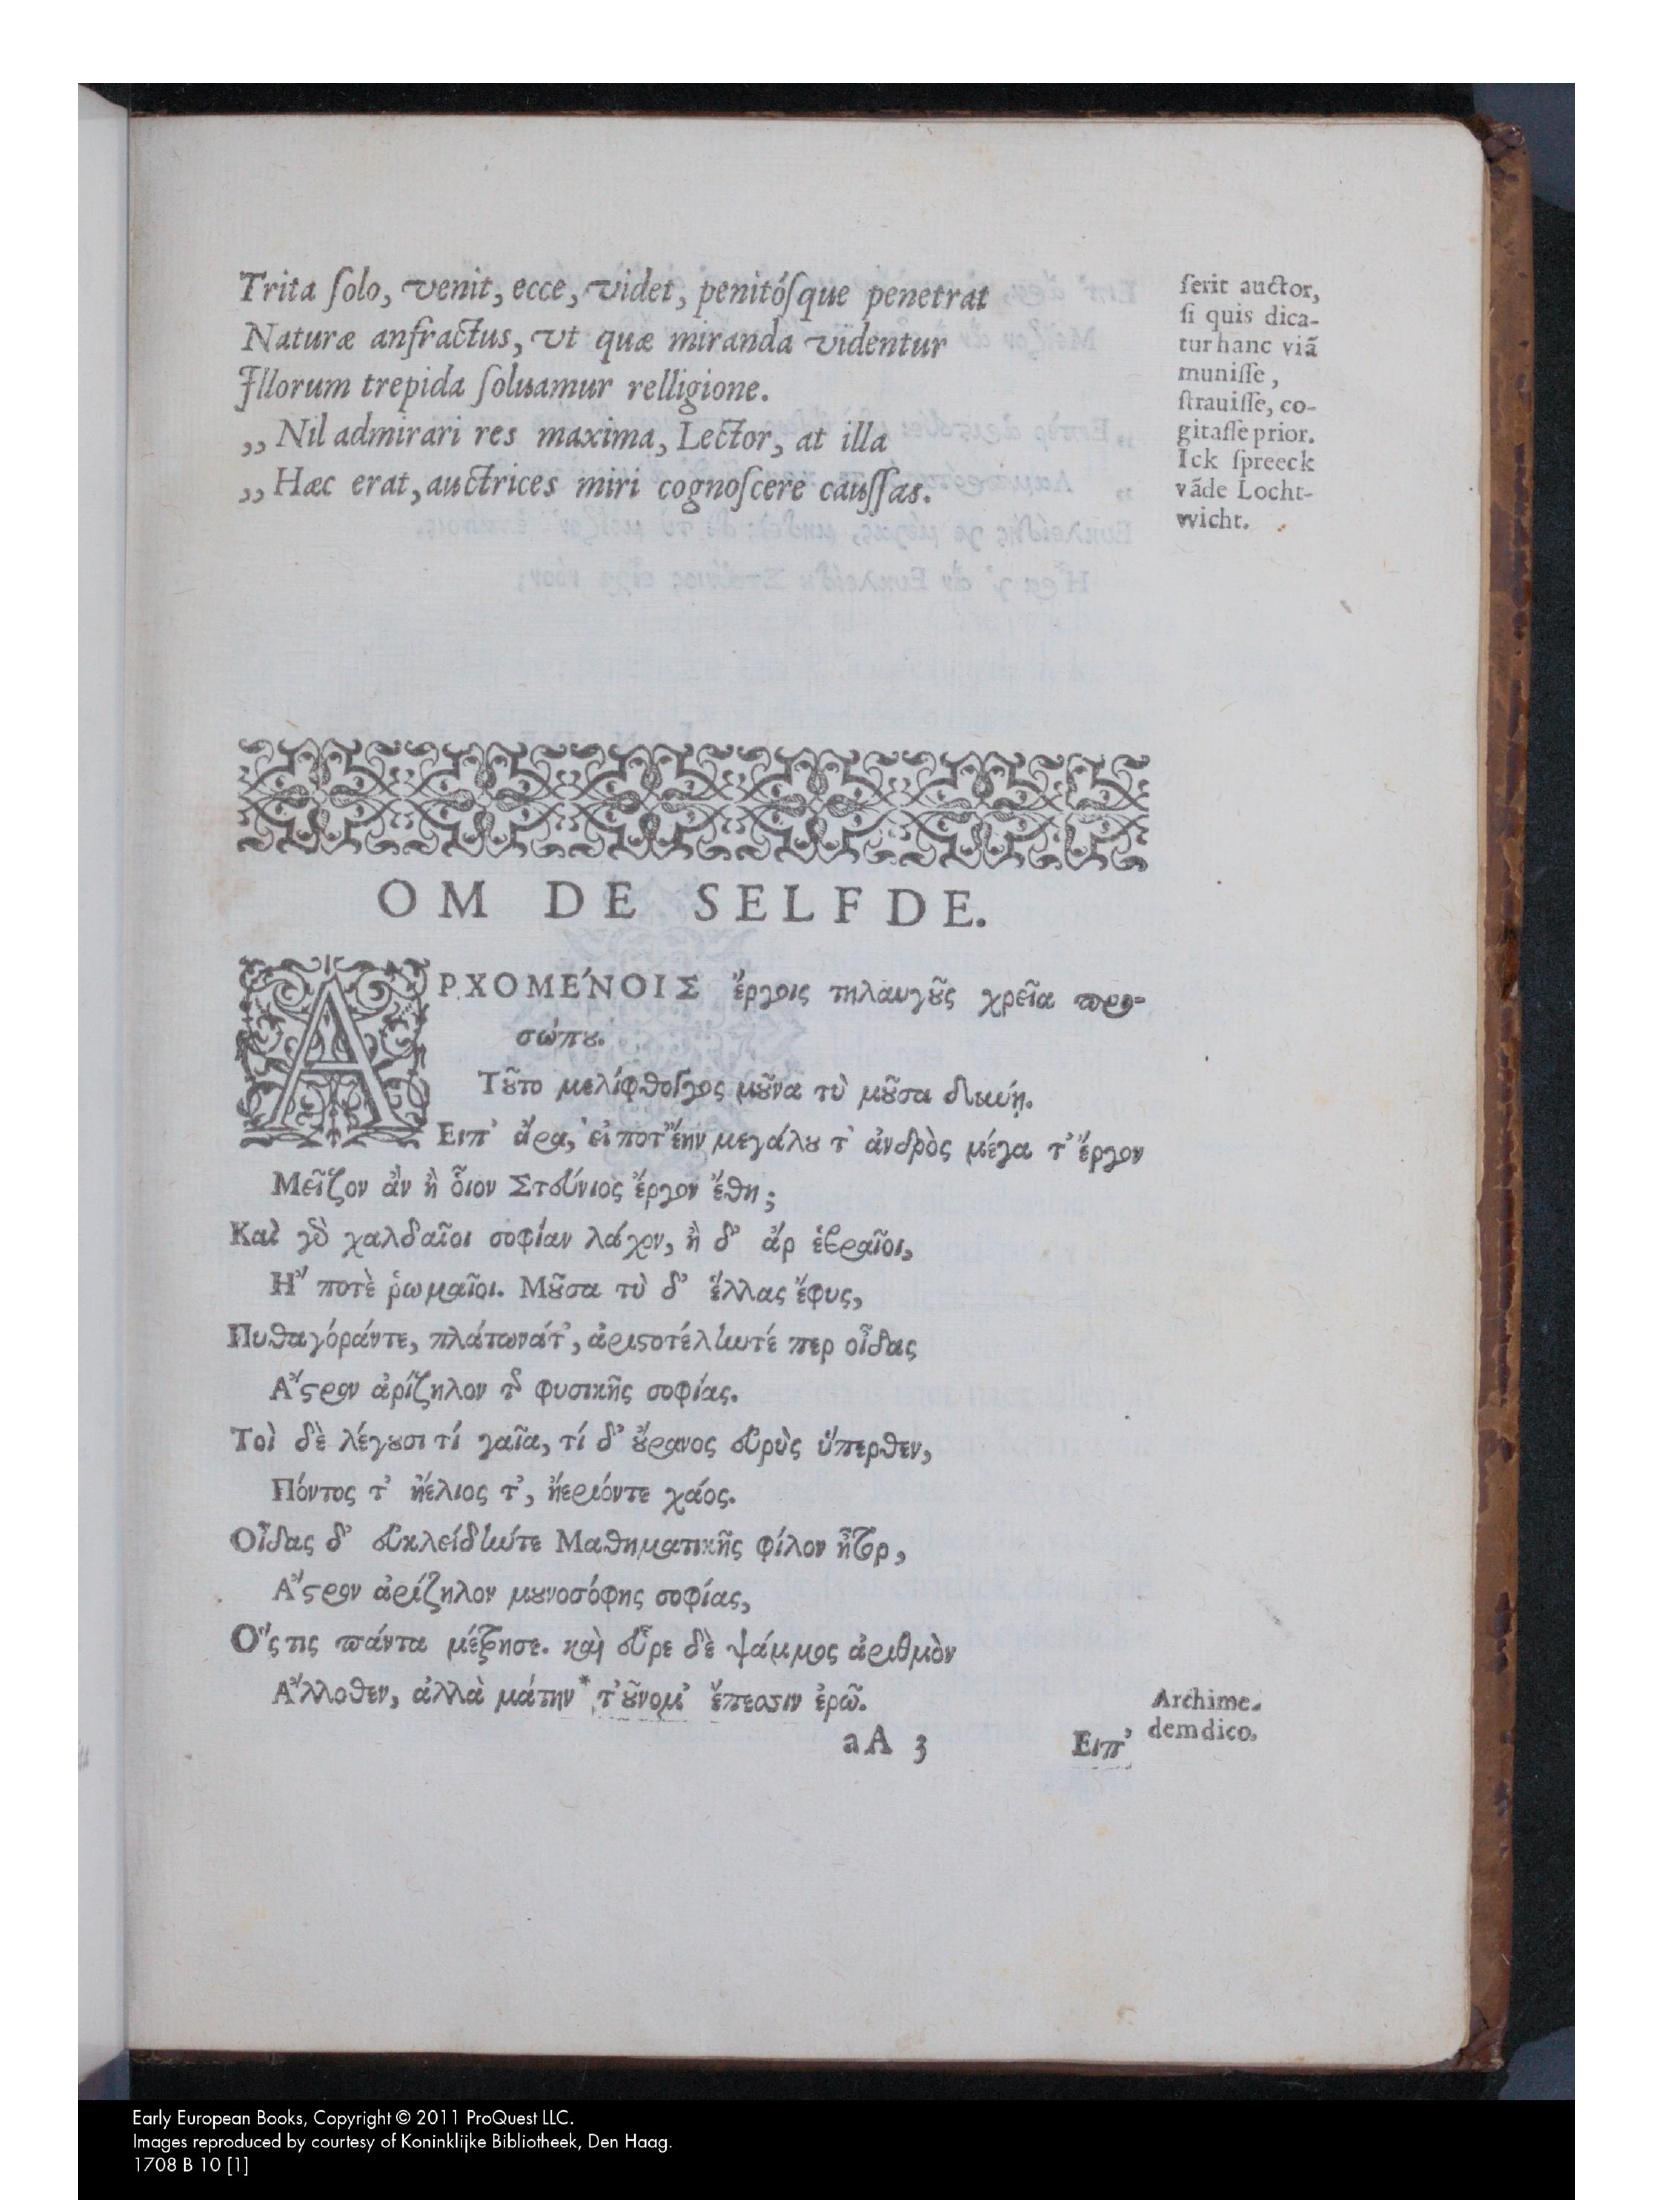 Trita ſolo, venit, ecce, videt, penitóſque penetrat
Naturæ anfractus, vt quæ miranda videntur
Illorum trepida ſoluamur relligione.
,, Nil admirari res maxima, Lector, at illa
,, Hæc erat, auctrices miri cognoſcere cauſſas.
ſerit auctor,
ſi quis dica-
tur hanc viã
muniſſe,
ſtrauiſſe, co-
gitaſſe prior.
Ick ſpreeck
vãde Locht-
wicht.
OM DE SELFDE.
ΑΡΧΟΜΈΝΟΙΣ ἔργοις τηλαυγȣ̃ς χρεῖα προ-
σώπȣ.
Τȣ̃το μελίφθογγος μȣ̃να τὺ μȣ̃σα
Ειπ' ἄρα, εἰ ποτ' ἔην μεγάλȣ τ' ἀνδρὸς μέγα τ' ἔργον
Μεῖζον ἂν ἢ ὅιον Στεύνιος ἔργον ἔθη;
Καὶ γὸ χαλδαῖοι σοφίαν λάχον, ἢ δ' ἄρ ἑβραῖοι,
Η῎ ποτὲ ῥωμαῖοι. Μȣ̃σα τὺ δ' ἕλλας ἔφυς,
Πυθαγόράντε, πλάτωνάτ', ἀριστοτέληντέ περ οἶδας
Α῎στρον ἀρίζηλον τ͂ φυσικῆς σοφίας.
Τοὶ δὲ λέγȣσι τί γαῖα, τί δ' ȣ̓́ρανος εὐρὺς ὕπερθεν,
Πόντος τ' ἠέλιος τ', ἠεριόντε χάος.
Οἶδας δ' εὐκλείδηντε Μαθηματικῆς φίλον ἦτορ,
Α῎στρον ἀρίζηλον μȣνοσόφης σοφίας,
Ο῞ςτις πάντα μέτρησε. καὶ εὗρε δὲ ψάμμος ἀριθμὸν
Α῎λλοθεν, ἀλλὰ μάτην * τ'ȣ̓͂νομ' ἔπεσσιν ἐρῶ.
Archime-
dem dico.
aA 3
Ειπ'
Early European Books, Copyright © 2011 ProQuest LLC.
Images reproduced by courtesy of Koninklijke Bibliotheek, Den Haag.
1708 B 10 [1]